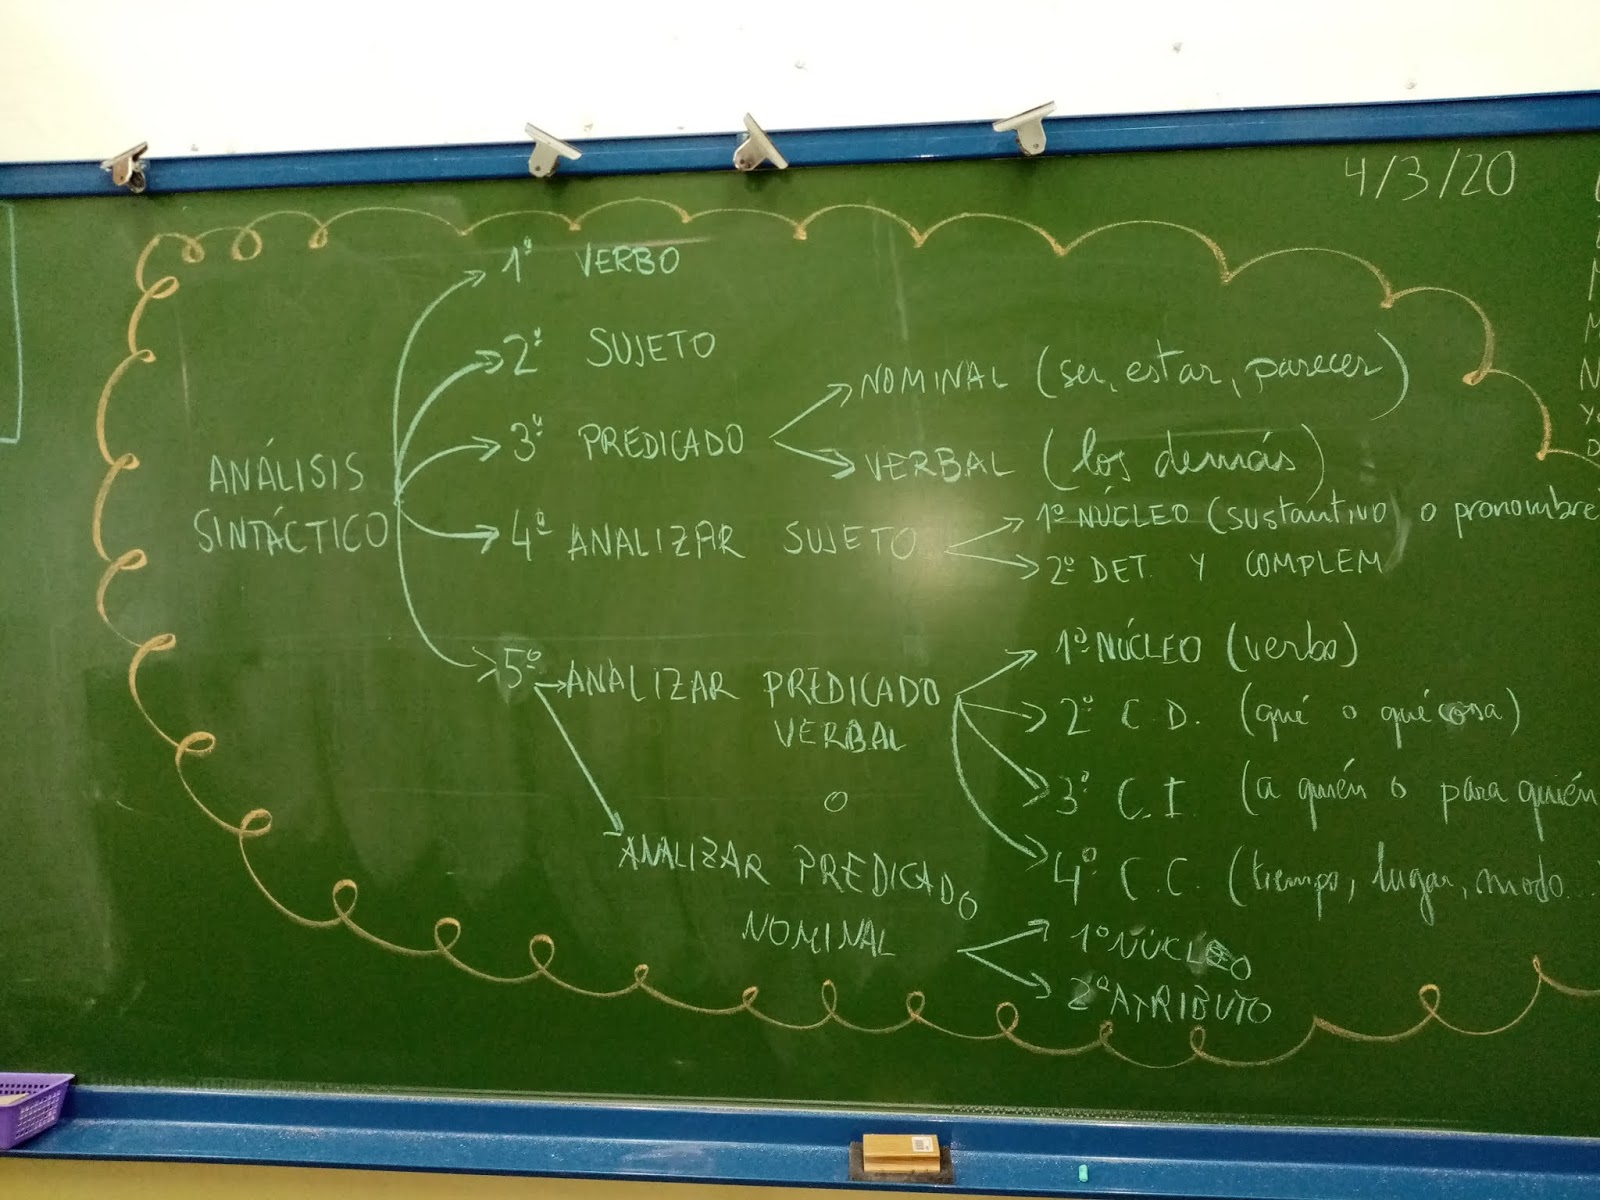 4/3/20
ANÁLISIS
SINTÁCTICO
1º VERBO
2º SUJETO
3º PREDICADO
NOMINAL (ser, estar, parecer)
VERBAL (los demás)
4º ANALIZAR SUJETO
1º NÚCLEO (sustantivo) o pronombre
2º DET. Y COMPLEM
5º ANALIZAR PREDICADO
VERBAL
1º NÚCLEO (verbo)
2º C.D. (qué o qué cosa)
3º C.I. (a quién o para quién
4º C.C. (tiempo, lugar, modo...
O
ANALIZAR PREDICADO
NOMINAL
1º NÚCLEO
2º ATRIBUTO